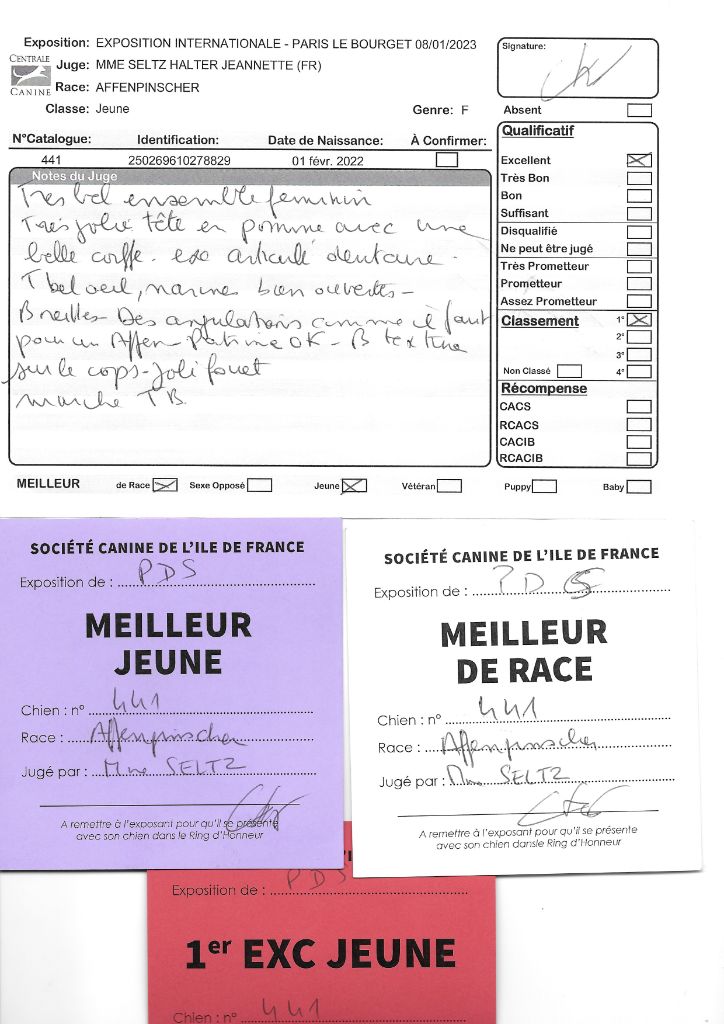 Exposition: EXPOSITION INTERNATIONALE - PARIS LE BOURGET 08/01/2023
CENTRALE
CANINE
Juge: MME SELTZ HALTER JEANNETTE (FR)
Race: AFFENPINSCHER
Classe: Jeune
Genre: F
N°Catalogue: Identification: Date de Naissance: À Confirmer:
441 250269610278829 01 févr. 2022
Notes du Juge
Très bel ensemble feminin
Très jolie tête en pomme avec une
belle coiffe. exc articulé dentaire.
T bel oeil, narines bien ouvertes -
B oreilles - Des angulations comme il faut
pour un Affen - Poitrine OK - B texture
sur le corps - Joli fouet
marche TB.
Signature:
Absent
Qualificatif
Excellent
Très Bon
Bon
Suffisant
Disqualifié
Ne peut être jugé
Très Prometteur
Prometteur
Assez Prometteur
Classement 1°
2°
3°
Non Classé 4°
Récompense
CACS
RCACS
CACIB
RCACIB
MEILLEUR de Race Sexe Opposé Jeune Vétéran Puppy Baby
SOCIÉTÉ CANINE DE L'ILE DE FRANCE
Exposition de : PDS
MEILLEUR
JEUNE
Chien : n° 441
Race : Affenpinscher
Jugé par : Mme SELTZ
A remettre à l'exposant pour qu'il se présente
avec son chien dans le Ring d'Honneur
SOCIÉTÉ CANINE DE L'ILE DE FRANCE
Exposition de : PDS
MEILLEUR
DE RACE
Chien : n° 441
Race : Affenpinscher
Jugé par : Mme SELTZ
A remettre à l'exposant pour qu'il se présente
avec son chien dansle Ring d'Honneur
Exposition de : PDS
1er EXC JEUNE
Chien : n° 441